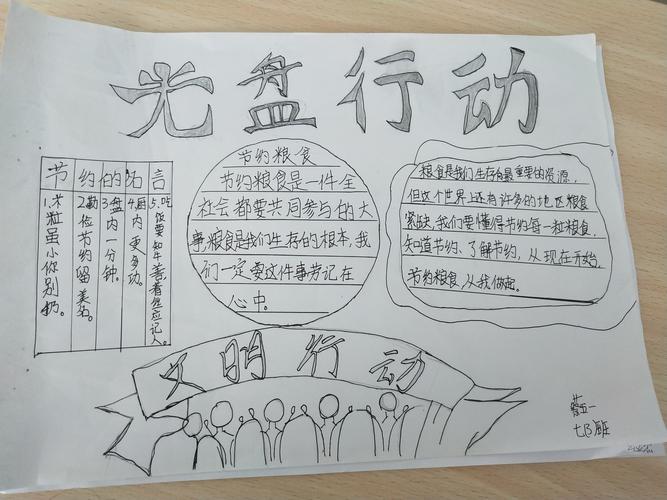 光盘行动
节约的名言
1.米粒虽小你别扔。
2.勤俭节约留美名。
3.盘内一分钟。
4.厨内更多功。
5.吃饭要知牛善着恩应记人。
节约粮食
节约粮食是一件全
社会都要共同参与的大
事,粮食是我们生存的根本,我
们一定要这件事劳记在
心中。
粮食是我们生存有最重要的资源,
但这个世界上还有许多的地区粮食
紧缺,我们要懂得节约每一粒粮食,
知道节约、了解节约,从现在开始,
节约粮食,从我做起。
文明行动
五一
七(3)班